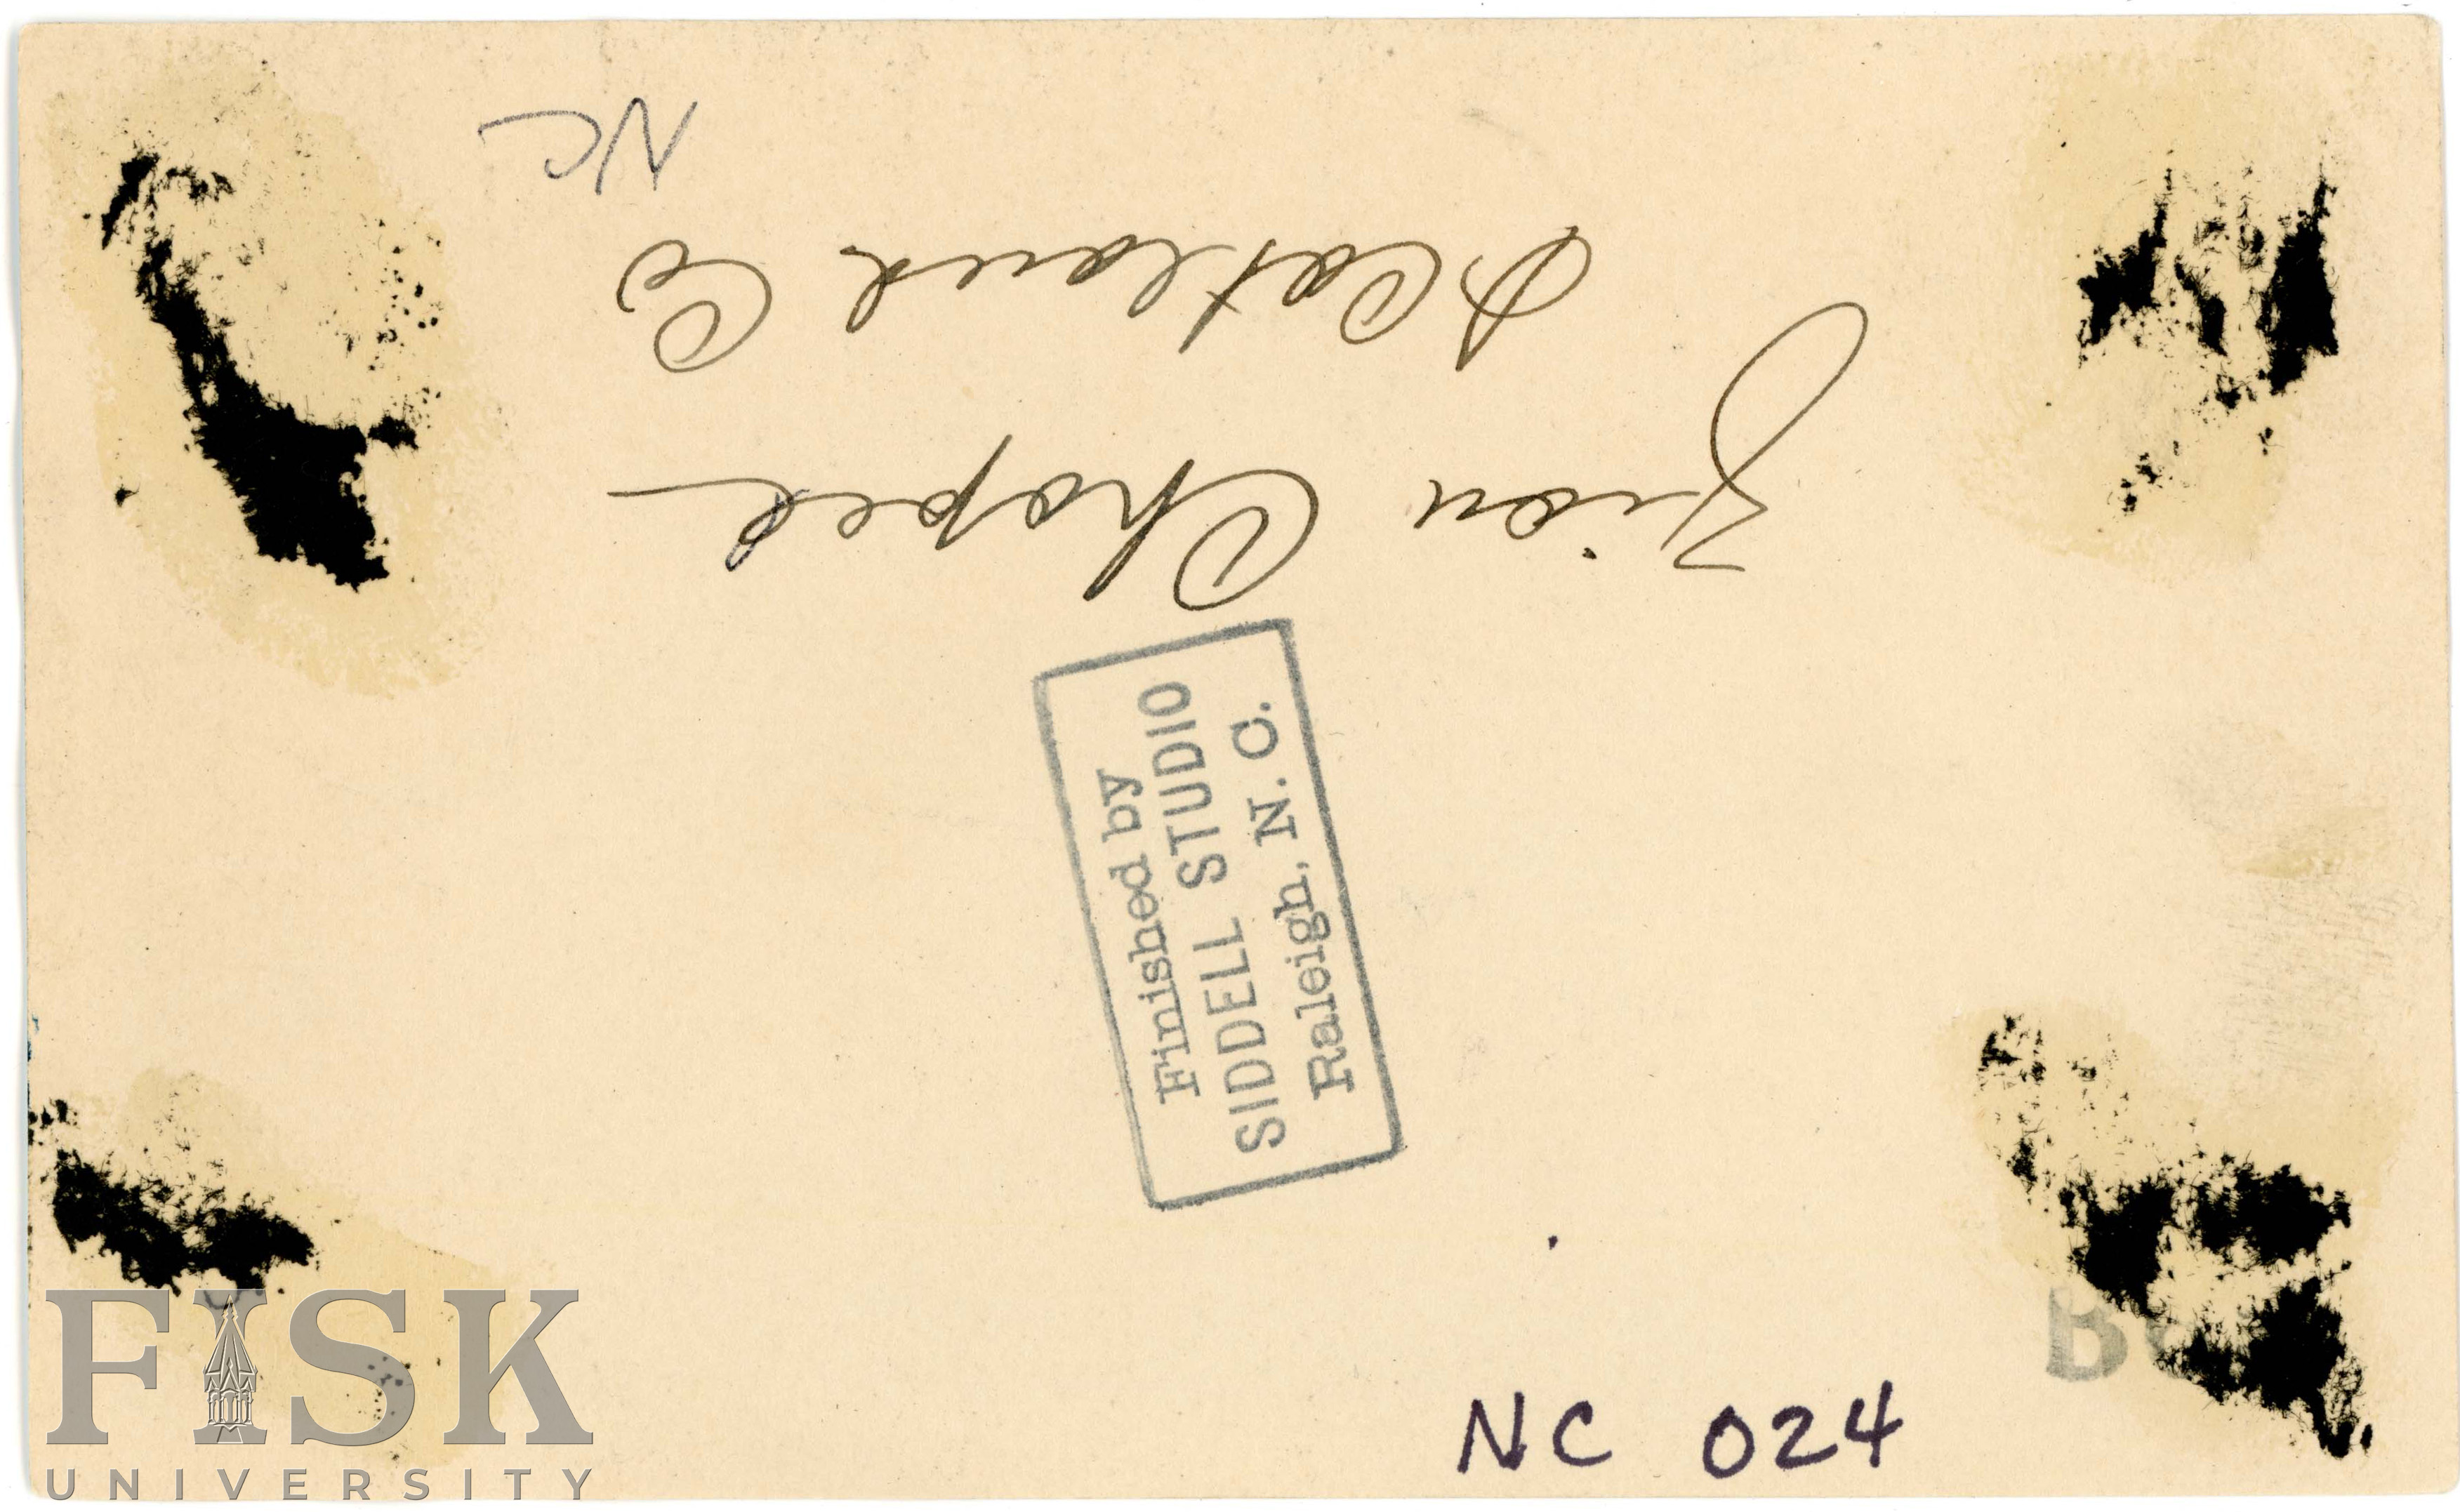 Zion Chapel
Scotland Co
NC
Finished by
SIDDELL STUDIO
Raleigh, N. C.
NC 024
FISK
UNIVERSITY